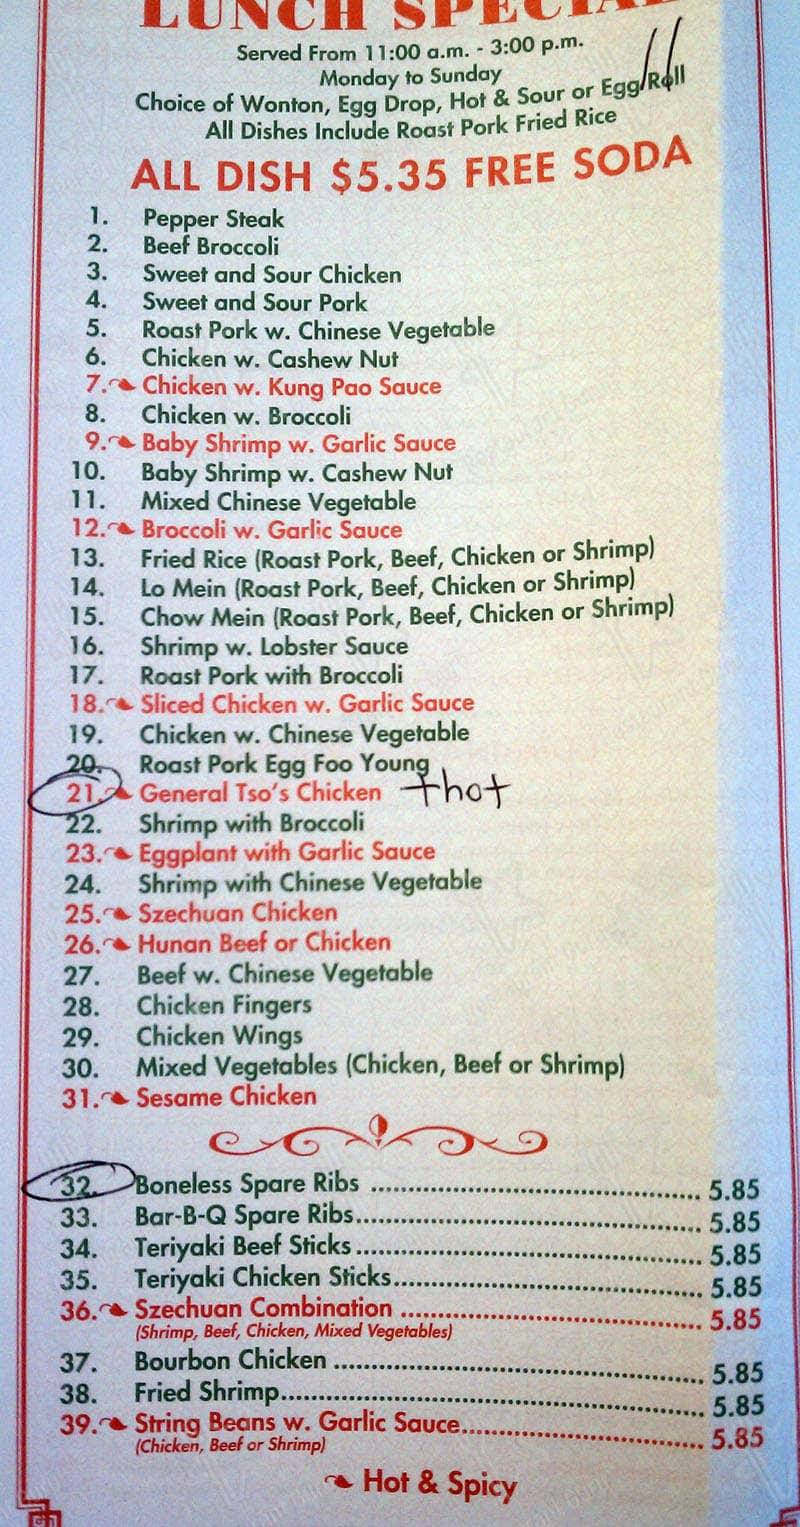 LUNCH SPECIAL
Served From 11:00 a.m. - 3:00 p.m.
Monday to Sunday
Choice of Wonton, Egg Drop, Hot & Sour or Egg Roll
All Dishes Include Roast Pork Fried Rice
ALL DISH $5.35 FREE SODA
1. Pepper Steak
2. Beef Broccoli
3. Sweet and Sour Chicken
4. Sweet and Sour Pork
5. Roast Pork w. Chinese Vegetable
6. Chicken w. Cashew Nut
7. Chicken w. Kung Pao Sauce
8. Chicken w. Broccoli
9. Baby Shrimp w. Garlic Sauce
10. Baby Shrimp w. Cashew Nut
11. Mixed Chinese Vegetable
12. Broccoli w. Garlic Sauce
13. Fried Rice (Roast Pork, Beef, Chicken or Shrimp)
14. Lo Mein (Roast Pork, Beef, Chicken or Shrimp)
15. Chow Mein (Roast Pork, Beef, Chicken or Shrimp)
16. Shrimp w. Lobster Sauce
17. Roast Pork with Broccoli
18. Sliced Chicken w. Garlic Sauce
19. Chicken w. Chinese Vegetable
20. Roast Pork Egg Foo Young
21. General Tso's Chicken +hot
22. Shrimp with Broccoli
23. Eggplant with Garlic Sauce
24. Shrimp with Chinese Vegetable
25. Szechuan Chicken
26. Hunan Beef or Chicken
27. Beef w. Chinese Vegetable
28. Chicken Fingers
29. Chicken Wings
30. Mixed Vegetables (Chicken, Beef or Shrimp)
31. Sesame Chicken
32. Boneless Spare Ribs 5.85
33. Bar-B-Q Spare Ribs 5.85
34. Teriyaki Beef Sticks 5.85
35. Teriyaki Chicken Sticks 5.85
36. Szechuan Combination 5.85
(Shrimp, Beef, Chicken, Mixed Vegetables)
37. Bourbon Chicken 5.85
38. Fried Shrimp 5.85
39. String Beans w. Garlic Sauce 5.85
(Chicken, Beef or Shrimp)
Hot & Spicy